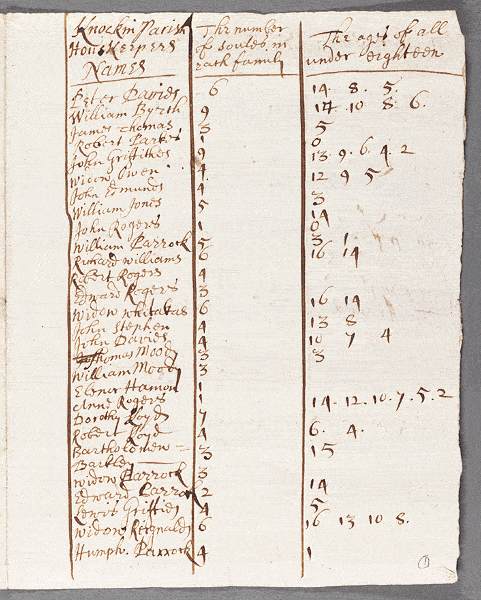 Knockin Parish The number The ages of all
Hous Keepers of soules in under eighteen
Names each family
Peter Davies 6 14 . 8 . 5 .
William Byrth 9 14 . 10 8 . 6 .
James Thomas 3 5
Robert Parkes 1 0
John Griffithes 9 13 . 9 . 6 . 4 . 2
widow Owen 4 12 9 5
John Edmunds 4 3
William Jones 5 14
John Rogers 1 0
William Parrock 5 3 1
Richard Williams 6 16 14
Robert Rogers 4
Edward Rogers 3 16 14
Widow 6 13 8
John Stephen 4
John Davies 4 10 7 4
Thomas Mood 3 3
William Mood 3
Elener Hamon 1
Anne Rogers 1 14 . 12 . 10 . 7 . 5 . 2
Dorothy Lloyd 7
Robert Lloyd 4 6 . 4 .
Bartholomew = 3 15
Barkley
widow Parrock 3 14
Edward Parrock 2
Lewis Griffies 4 5
Widow Reignalds 6 16 13 10 8 .
Humph. Parrock 4 1